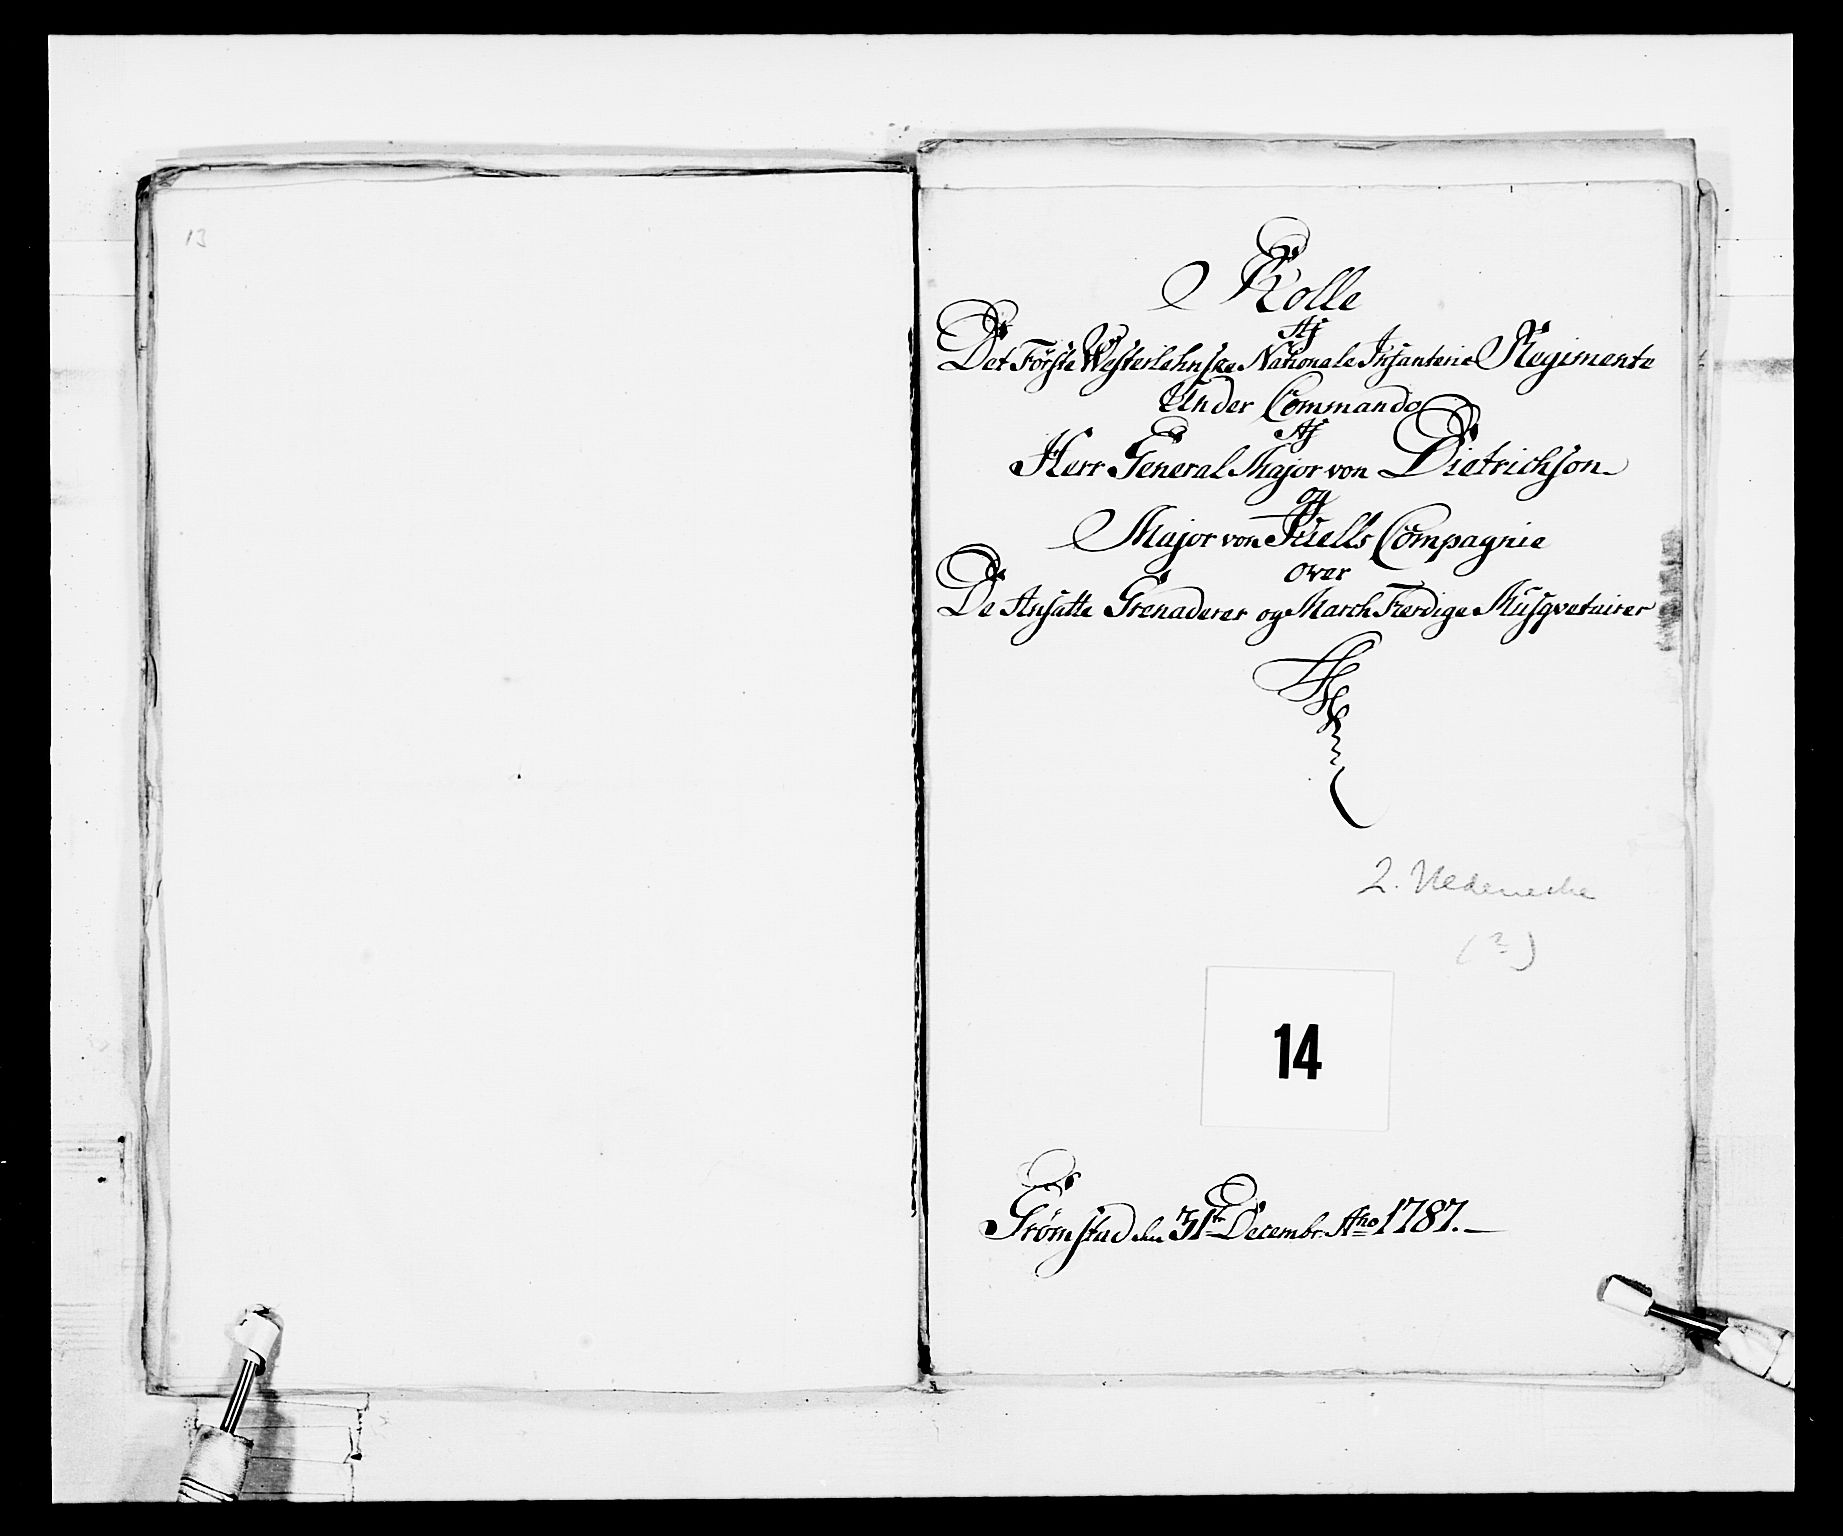 13
Rolle
Af
Det Første Westerlehnske Nationale Infanterie Regimente
Under Commando
Af
Herr General Major von Dietrichson
og
Major von Juells Compagnie
over
De Ansatte Grenaderer og March Færdige Musqvetairer
2. Nedeneske
(3)
14
Grømstad den 31te Decembr. Ano 1787.